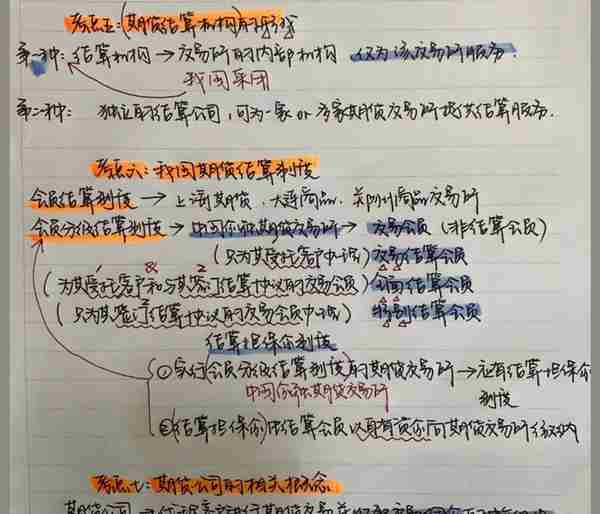 考点五：(期货结算机构)的形式
第一种：结算机构→交易所的内部机构 仅为该交易所服务.
我国采用
第二种： 独立的结算公司，可为一家or多家期货交易所提供结算服务.
考点六：我国期货结算制度
会员结算制度→上海期货、大连商品、郑州商品交易所
会员分级结算制度→中国金融期货交易所→交易会员(非结算会员)
(只为其受托客户申请) 交易结算会员
(为其受托客户和与其签订结算协议的交易会员) 全面结算会员
(只为其签订结算协议的交易会员申请) 特别结算会员
结算担保金制度
①实行(会员分级结算制度)的期货交易所→应有结算担保金
中国金融期货交易所 制度
②(结算担保金)由结算会员以自有资金向期货交易所缴纳
考点七：期货公司的相关概念
期货公司→